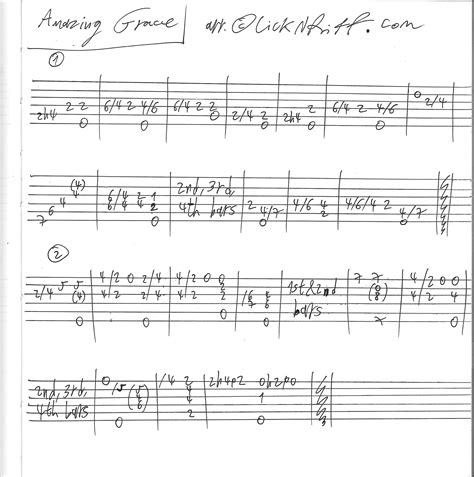 Amazing Grace arr. © LickNRiff.com
①
0
2h4 2 2 6/4 2 4/6 6/4 2 2 2/4 2 2h4 2 6/4 2 4/6 2/4
0 0 0 0 0 0
(4) 2nd, 3rd,
7 6 4 4 6/4 2 1 4th bars 2 4/7 4/6 4 4/6/4 2 4/7
0 0 0
②
4/2 0 2/4 4/2 0 0 7 7 4/2 0 0
2/4 5 5 (4) 4/2 2/4 4/2 2 1st & 2nd 4/2 4
0 0 0 bars 0
2nd, 3rd, 0 /5 (5) /4 2 2h4p2 0h2p0
4th bars 4 1
0 2 0